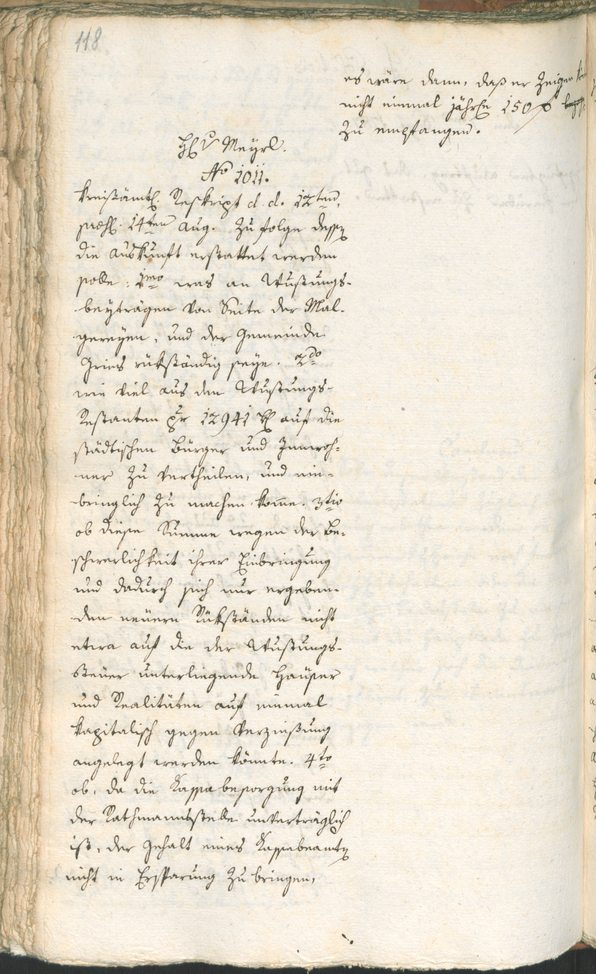 118.
H v Meyrl.
No 1011.
Kreisämtl. Reskript d. d. 12ten,
14ten Aug. Zufolge dessen
die Auskunft erstattet werden
solle: 1mo was an Wustungs-
beyträgen von Seite der Mal-
gereyen, und der Gemeinde
Gries rükständig seye. 2do
wie viel aus den Wustungs-
Restanten pr 12941 f auf die
städtischen Bürger und Innwoh-
ner zu vertheilen, und ein-
bringlich zu machen komme. 3tio
ob diese Summe wegen der Be-
schwerlichkeit ihrer Einbringung
und dadurch sich nur ergeben-
den neuern Rükständen nicht
etwa auf die der Wustungs-
steuer unterliegende Häuser
und Realitäten auf einmal
kapitalisch gegen Verzinsung
angelegt werden könnte. 4to
ob, da die Kassabesorgung mit
der Rathmannsstelle unverträglich
ist, der Gehalt eines Kassabeamten
nicht in Ersparung zu bringen,
es wäre dann, daß er zeigen
nicht einmal jährl 150 f
zu empfangen.